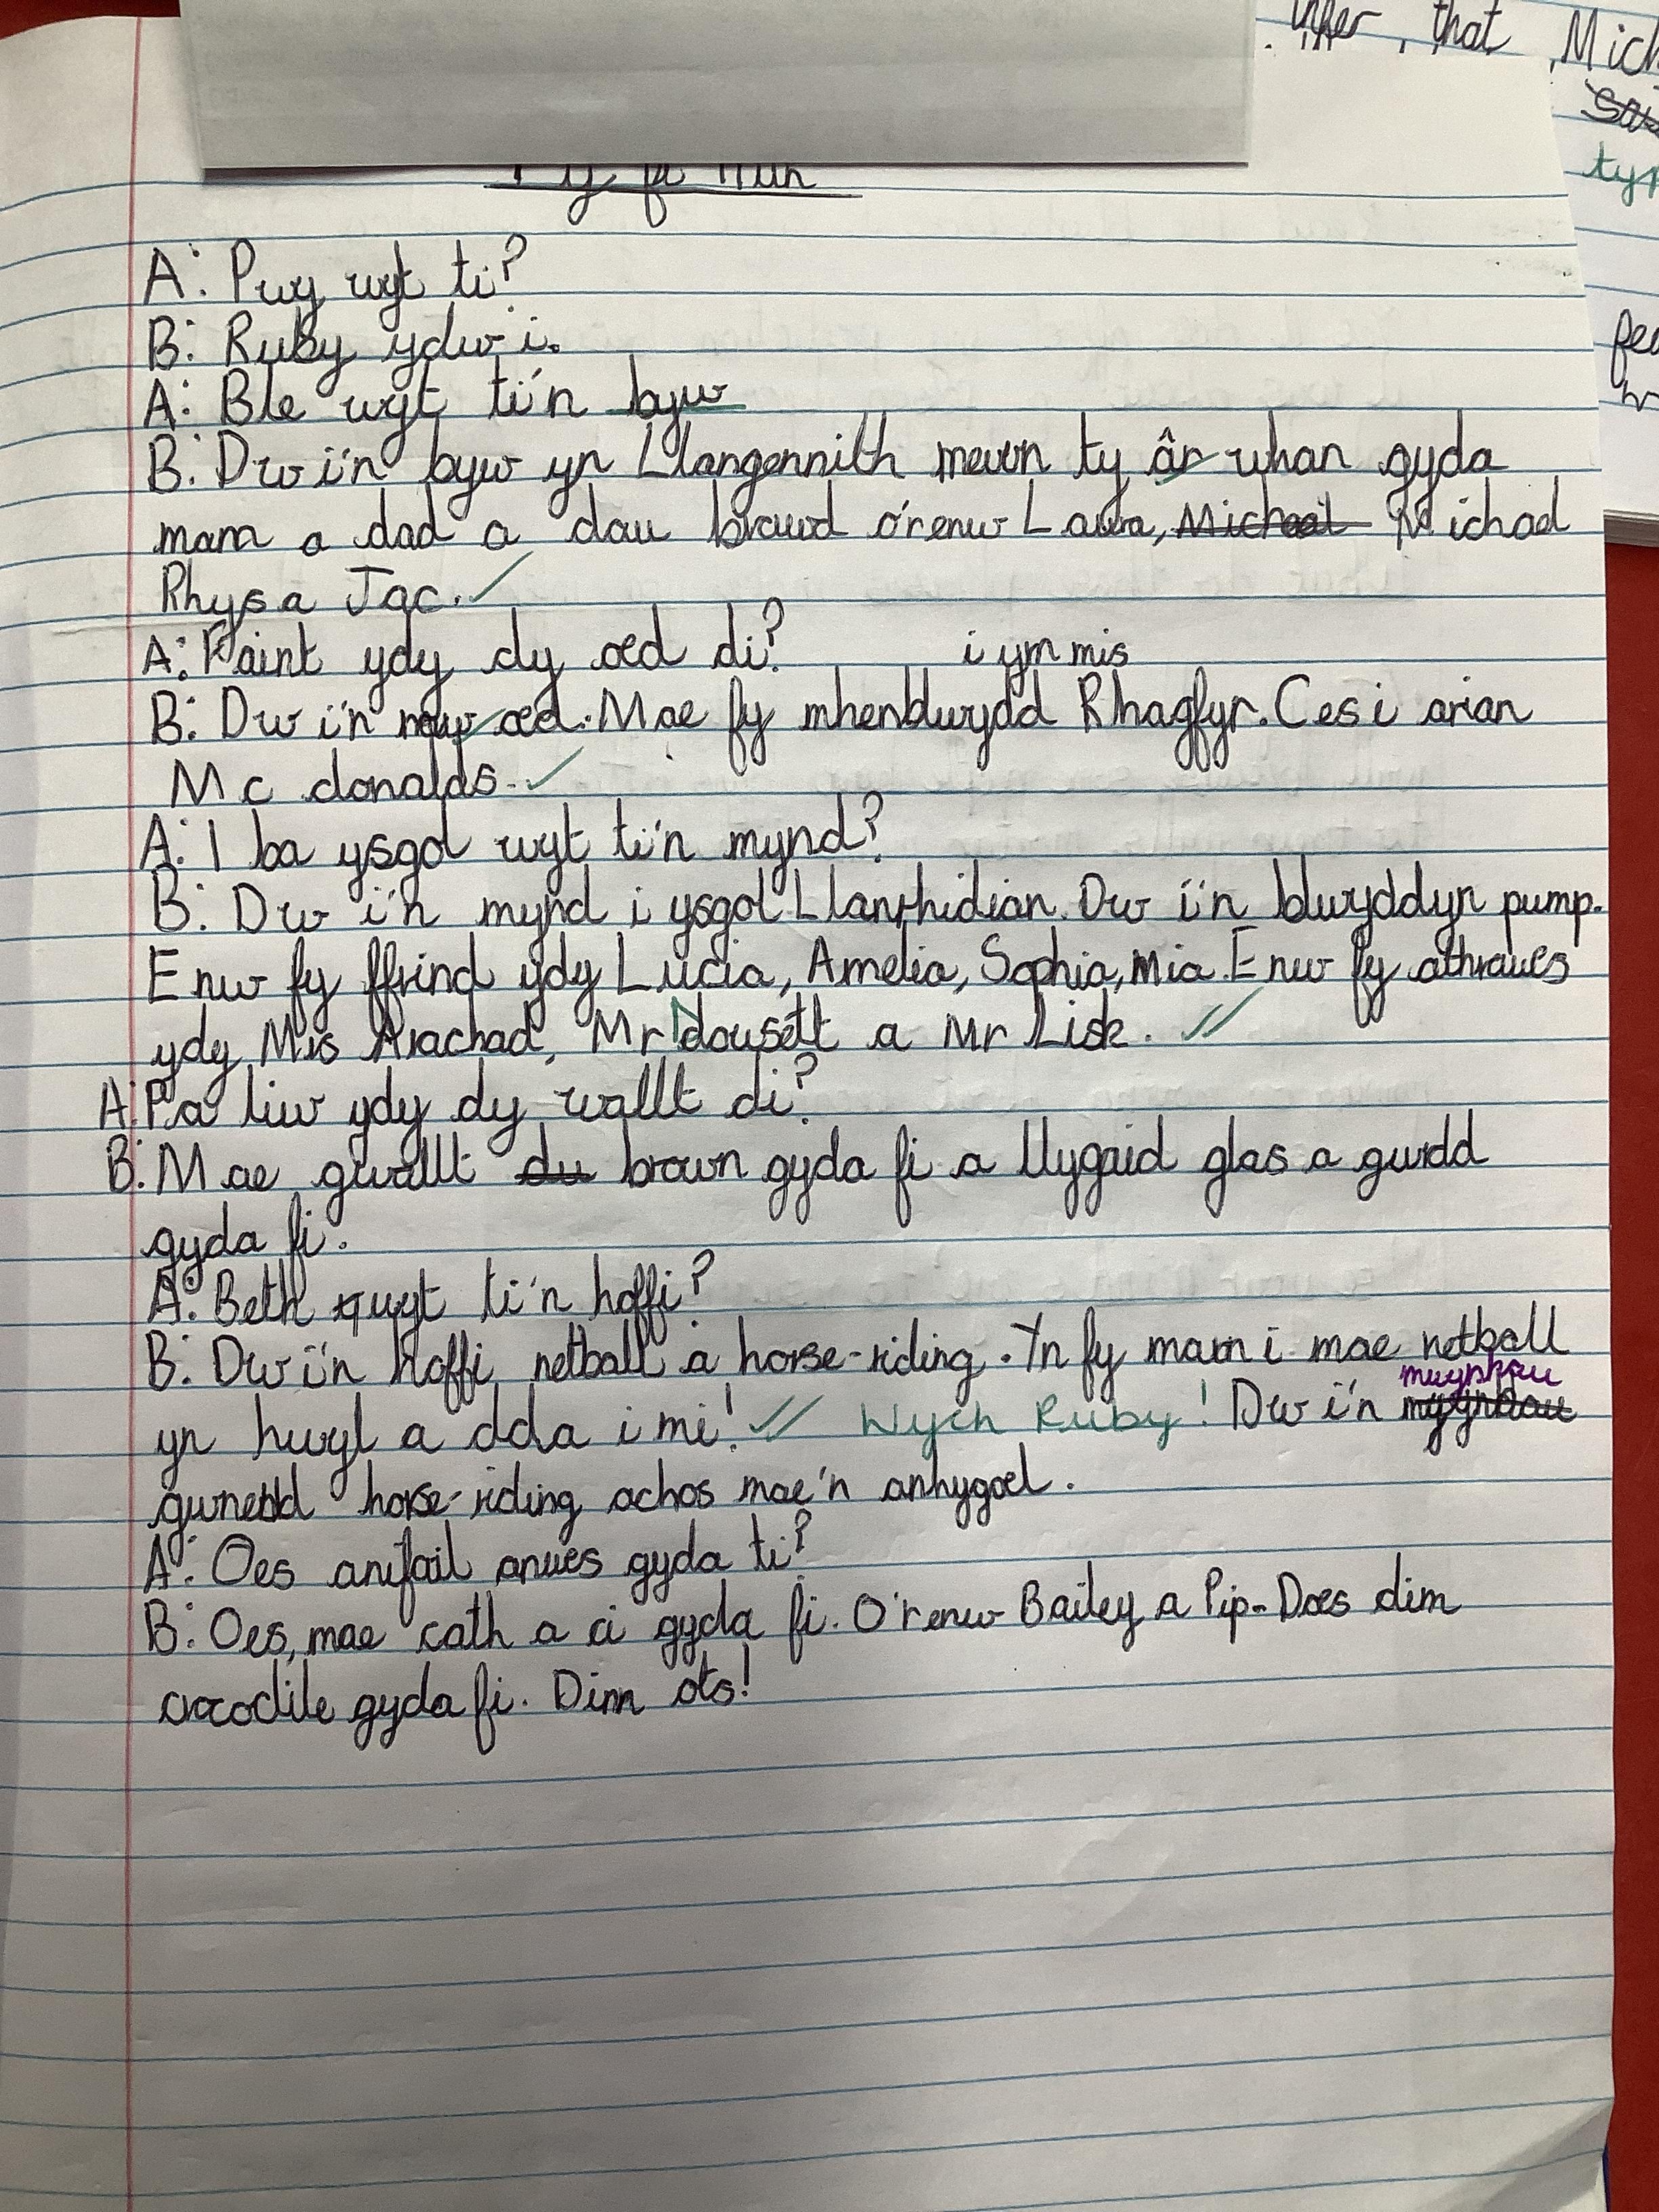 that Mich
typ
A: Pwy wyt ti?
B: Ruby ydw i.
A: Ble wyt ti'n byw
B: Dw i'n byw yn Llangennith mewn ty âr whan gyda
mam a dad a dau brawd o'r enw Lawa, Michael Michael
Rhys a Jac.
A: Faint ydy dy oed di?
i ym mis
B: Dw i'n naw oed. Mae fy mhenblwydd Rhagfyr. Ces i arian
Mc donalds.
A: I ba ysgol wyt ti'n mynd?
B: Dw i'n mynd i ysgol Llanrhidian. Dw i'n blwyddyn pump.
Enw fy ffrind ydy Lucia, Amelia, Sophia, Mia. Enw fy athrawes
ydy Mis Arachad, Mr Dousett a Mr Lisk.
A: Pa liw ydy dy wallt di?
B: Mae gwallt du brown gyda fi a llygaid glas a gwrdd
gyda fi.
A: Beth wyt ti'n hoffi?
B: Dw i'n hoffi netball a horse-riding. Yn fy marn i mae netball
mwynhau
yn hwyl a dda i mi! Wych Ruby! Dw i'n
gwnebd horse-riding achos mae'n anhygoel.
A: Oes anifail anwes gyda ti?
B: Oes, mae cath a ci gyda fi. O'r enw Bailey a Pip. Does dim
crocodile gyda fi. Dim ots!